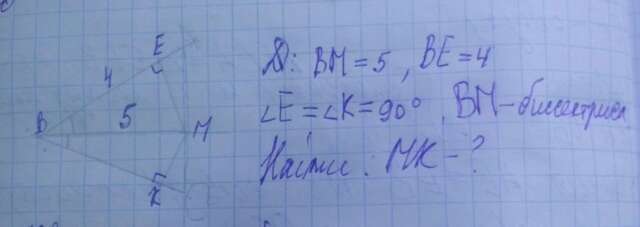 E
4
B
5
M
K
D: BM = 5, BE = 4
∠E = ∠K = 90°, BM – биссектриса
Найти: MK – ?